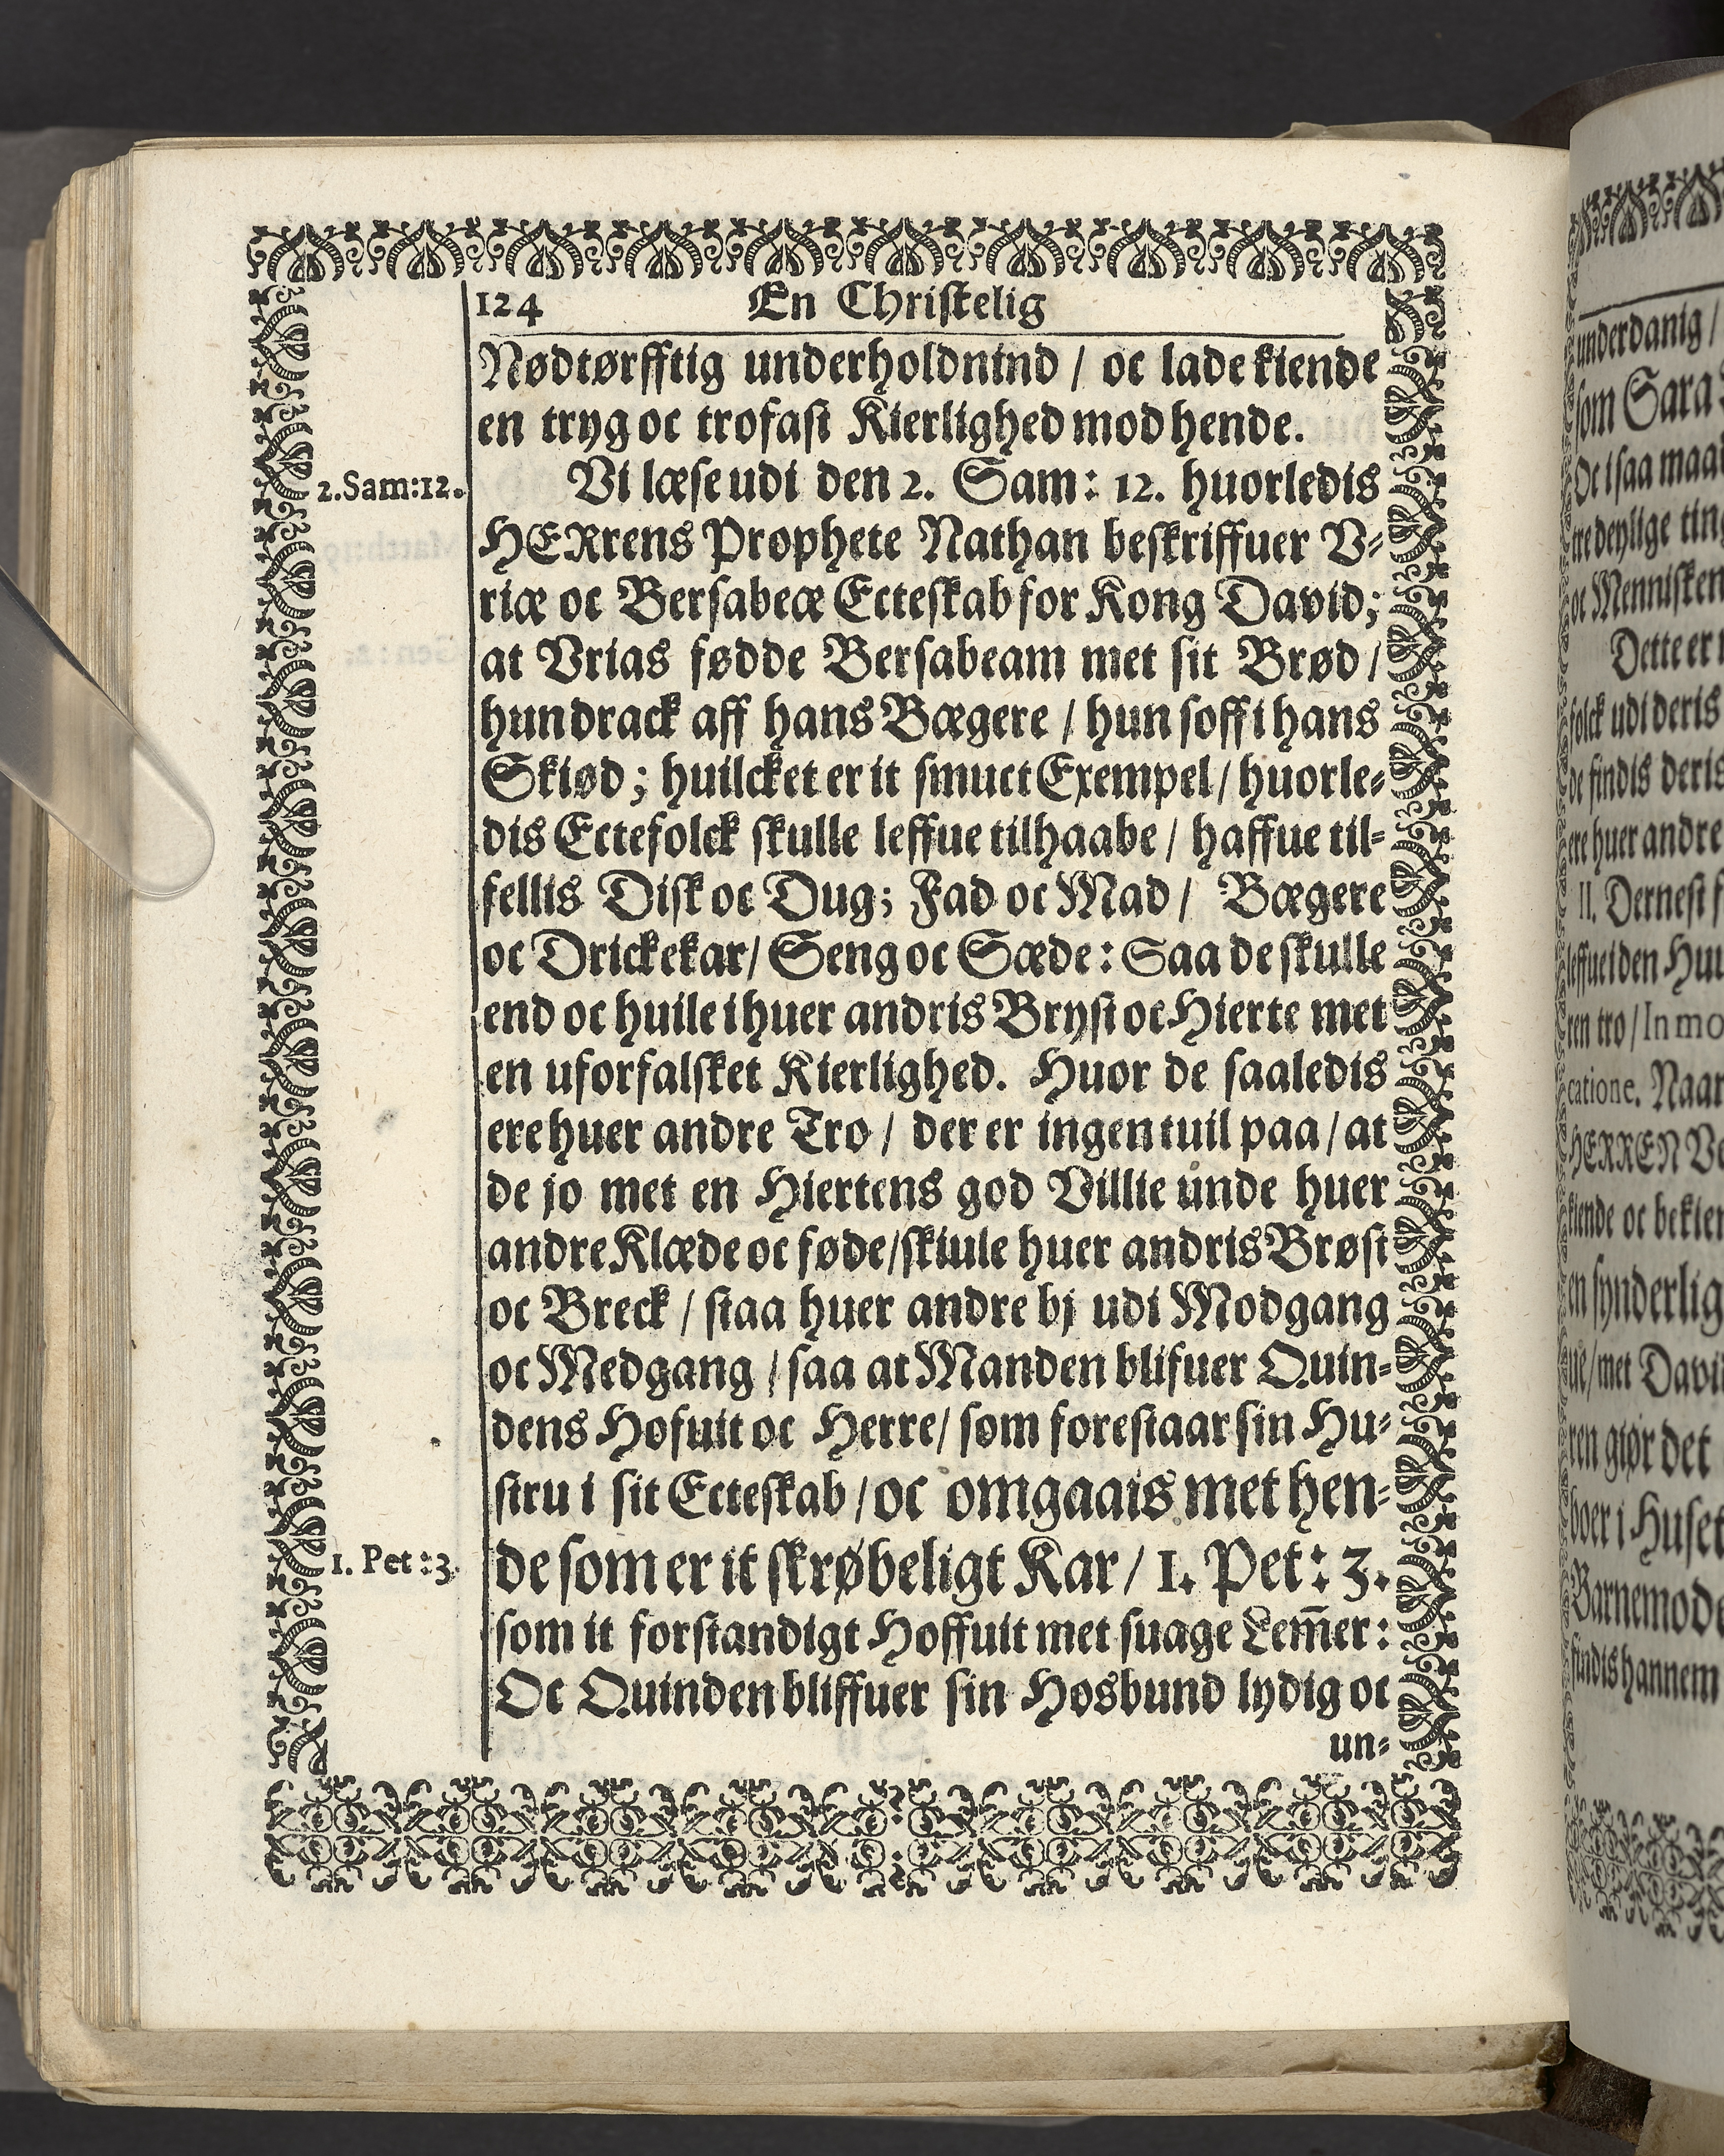 124 En Christelig
Nødtørfftig underholdnind / oc lade kiende
en tryg oc trofast Kierlighed mod hende.
2.Sam:12.
Vi læse udi den 2. Sam: 12. huorledis
HERrens Prophete Nathan beskriffuer V-
riæ oc Bersabeæ Ecteskab for Kong David;
at Vrias fødde Bersabeam met sit Brød /
hun drack aff hans Bægere / hun soff i hans
Skiød; huilcket er it smuct Exempel / huorle-
dis Ectefolck skulle leffue tilhaabe / haffue til-
fellis Disk oc Dug; Fad oc Mad / Bægere
oc Drickekar / Seng oc Sæde: Saa de skulle
end oc huile i huer andris Bryst oc Hierte met
en uforfalsket Kierlighed. Huor de saaledis
ere huer andre Tro / der er ingen tuil paa / at
de jo met en Hiertens god Villie unde huer
andre Klæde oc føde / skiule huer andris Brøst
oc Breck / staa huer andre bj udi Modgang
oc Medgang / saa at Manden blifuer Quin-
dens Hofuit oc Herre / som forestaar sin Hu-
stru i sit Ecteskab / oc omgaais met hen-
1. Pet:3.
de som er it skrøbeligt Kar / 1. Pet: 3.
som it forstandigt Hoffuit met suage Lem̄er:
Oc Quinden bliffuer sin Hosbund lydig oc
un-
underdanig /
som Sara
Oc i saa maa
tre deylige ting
oc Mennisken
Dette er
folck udi deris
de findis deris
ere huer andre
II. Dernest
leffue i den
ren tro / In mo
catione. Naar
HERREN
kiende oc bekien
en synderlig
ue / met Davi
ren giør det
boer i Huset
Barnemode
findis hannem